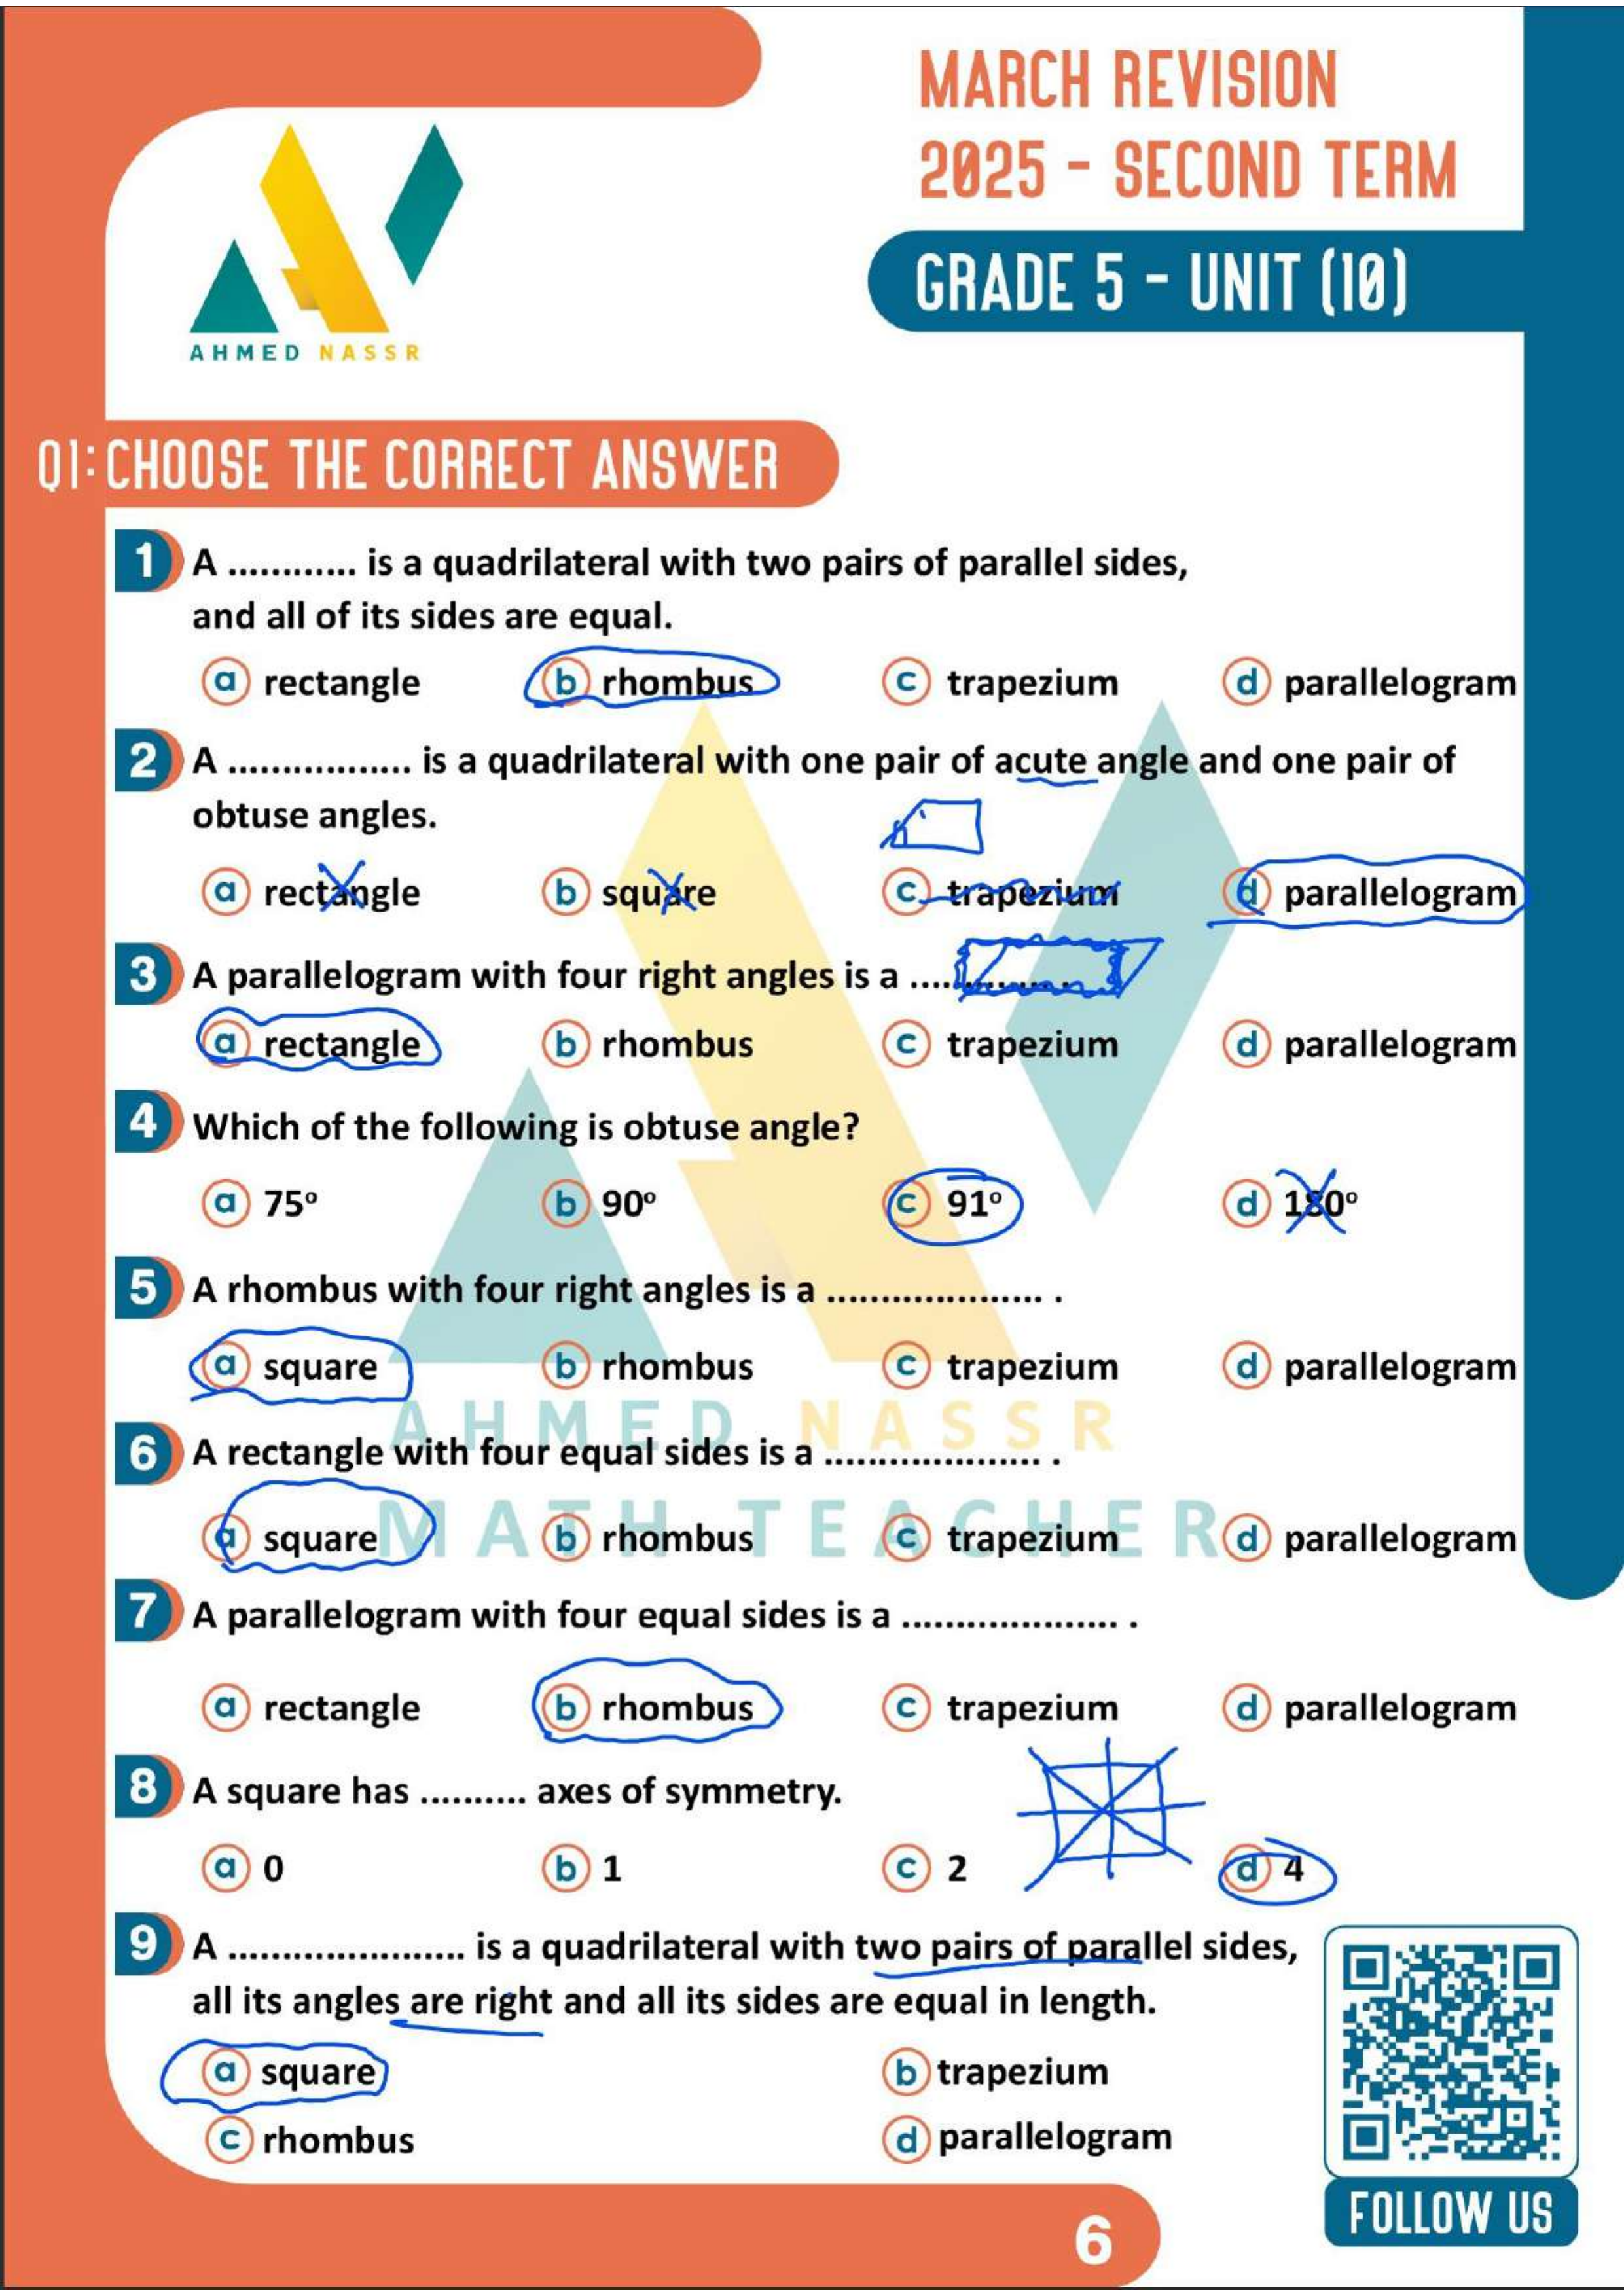 MARCH REVISION
2025 - SECOND TERM
GRADE 5 - UNIT (10)
AHMED NASSR
Q1: CHOOSE THE CORRECT ANSWER
1 A ............ is a quadrilateral with two pairs of parallel sides,
and all of its sides are equal.
a rectangle b rhombus c trapezium d parallelogram
2 A ................. is a quadrilateral with one pair of acute angle and one pair of
obtuse angles.
a rectangle b square c trapezium d parallelogram
3 A parallelogram with four right angles is a ...............
a rectangle b rhombus c trapezium d parallelogram
4 Which of the following is obtuse angle?
a 75° b 90° c 91° d 180°
5 A rhombus with four right angles is a .................... .
a square b rhombus c trapezium d parallelogram
AHMED NASSR
6 A rectangle with four equal sides is a .................... .
MATH TEACHER
a square b rhombus c trapezium d parallelogram
7 A parallelogram with four equal sides is a .................... .
a rectangle b rhombus c trapezium d parallelogram
8 A square has .......... axes of symmetry.
a 0 b 1 c 2 d 4
9 A ...................... is a quadrilateral with two pairs of parallel sides,
all its angles are right and all its sides are equal in length.
a square b trapezium
c rhombus d parallelogram
FOLLOW US
6